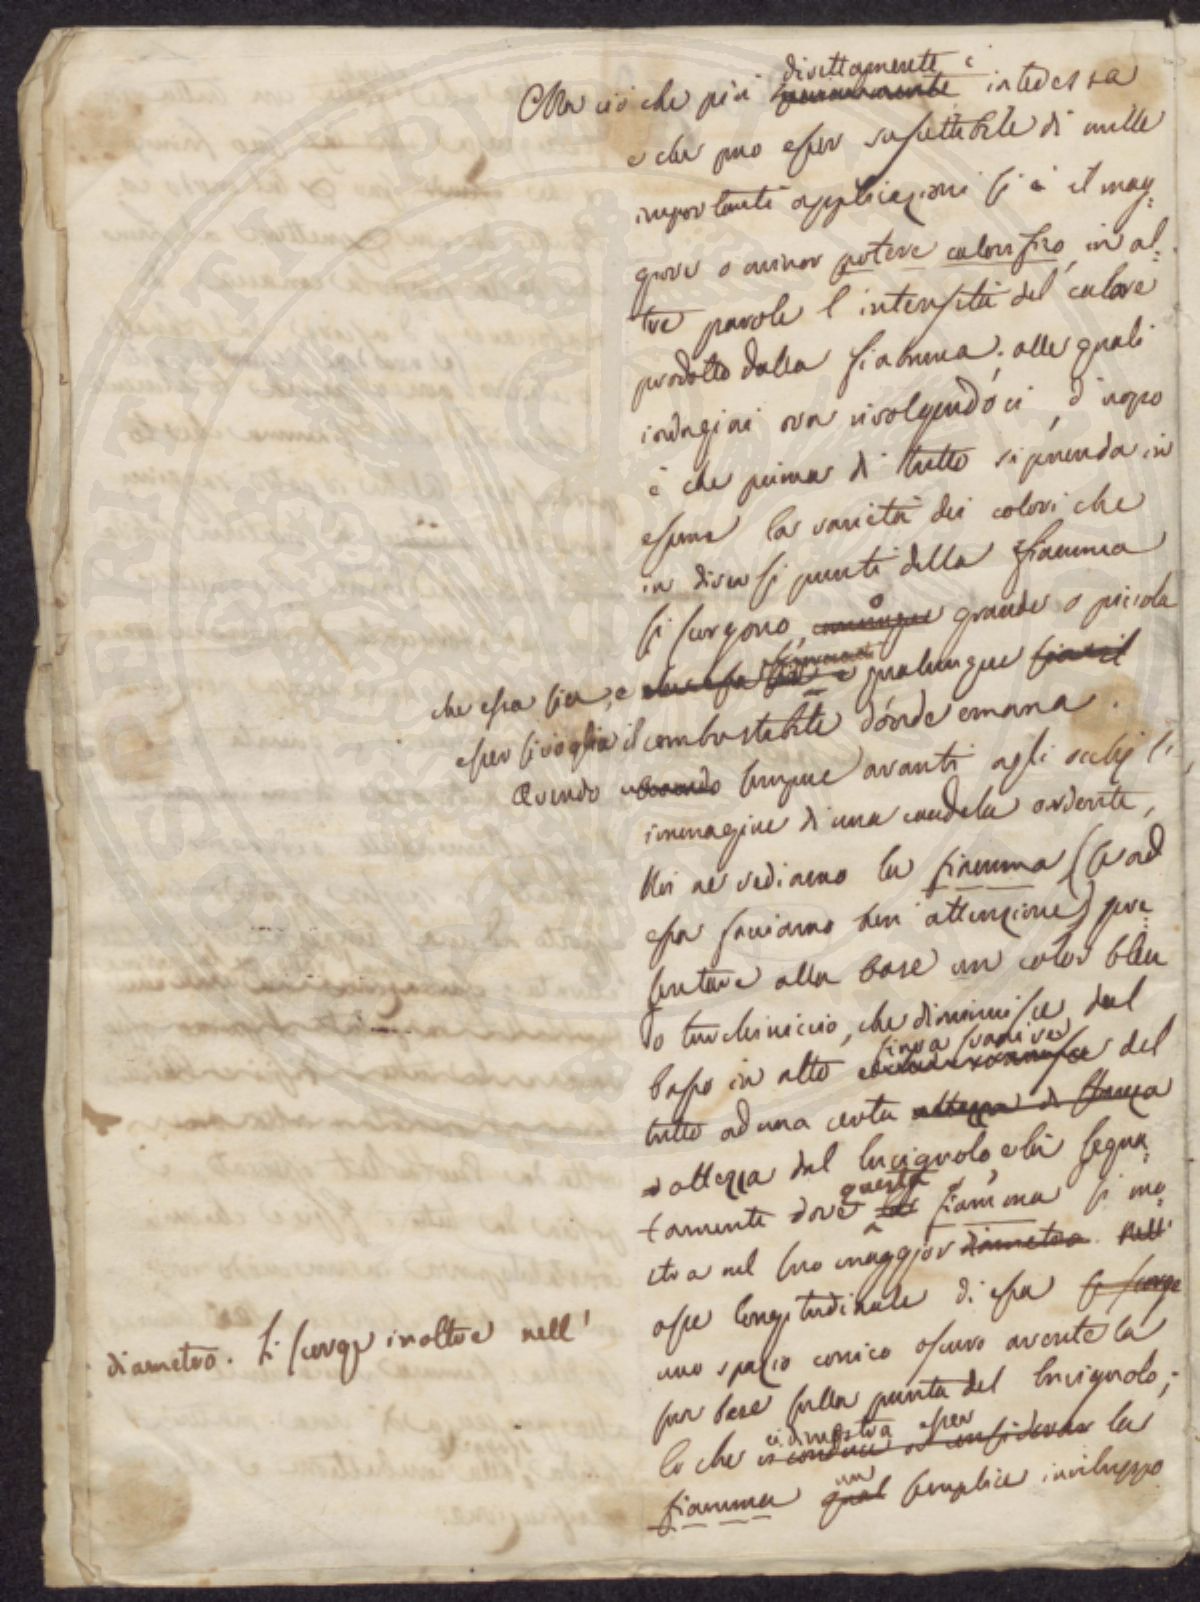 direttamente c'
Ma ciò che più interessa
e che può esser suscettibile di mille
importanti applicazioni si è il mag=
giore o minor potere calorifico, in al=
tre parole l'intensità del calore
prodotto dalla fiamma; alle quali
indagini ora rivolgendoci, d'uopo
è che prima di tutto si prenda in
esame la varietà dei colori che
in diversi punti della fiamma
si scorgono, o grande o piccola
che essa sia, e qualunque
esser si voglia il combustibile d'onde emana.
Avendo sempre avanti agli occhj l'
immagine di una candela ardente,
Noi ne vediamo la fiamma (se ad
essa facciamo ben attenzione) pre=
sentare alla base un color bleu
o turchiniccio, che diminuisce dal
sino a svanire
basso in alto del
tutto ad una certa altezza di
altezza dal lucignolo, e là segna=
questa
tamente dove la fiamma si mo=
stra nel suo maggior diametro. Nell'
diametro. Si scorge inoltre nell'
asse longitudinale di essa si scorge
uno spazio conico oscuro avente la
sua base sulla punta del lucignolo;
ci dimostra esser
lo che ci conduce a considerar la
un
fiamma qual semplice inviluppo